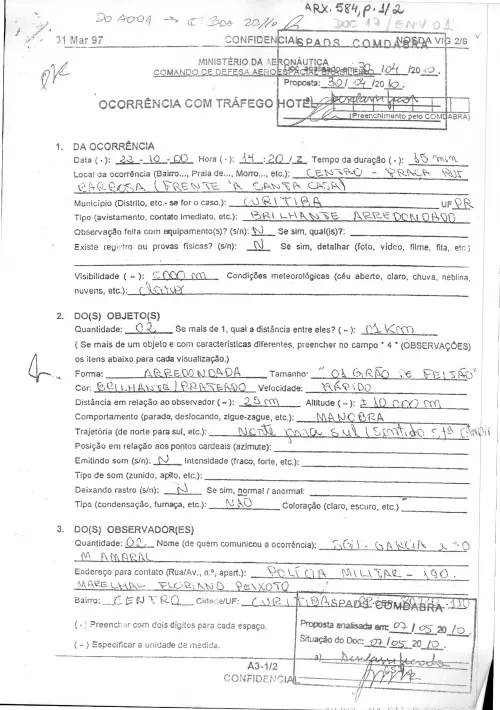 ARX. 584, p. 1/2
DO ADOA → C 3DA 20/10
DOC 17 / ENV 01
31 Mar 97 CONFIDENCIAL SPADS COMDABRA NOSDA VIG 2/6
MINISTÉRIO DA AERONÁUTICA
COMANDO DE DEFESA AEROESPACIAL BRASILEIRO
Doc. analisado em: 30 / 04 /20 10.
Proposta: 30 / 04 /20 10.
OCORRÊNCIA COM TRÁFEGO HOTEL
(Preenchimento pelo COMDABRA)
1. DA OCORRÊNCIA
Data ( · ): 22 - 10 - 00 Hora ( · ): 14 : 20 / Z Tempo da duração ( · ): 15 min
Local da ocorrência (Bairro..., Praia de..., Morro..., etc.): CENTRO - PRAÇA RUI
BARBOSA (FRENTE A SANTA CASA)
Município (Distrito, etc.- se for o caso.): CURITIBA UF PR
Tipo (avistamento, contato imediato, etc.): BRILHANTE ARREDONDADO
Observação feita com equipamento(s)? (s/n): N Se sim, qual(is)?:
Existe registro ou provas físicas? (s/n): N Se sim, detalhar (foto, vídeo, filme, fita, etc.)
Visibilidade ( ~ ): 5000 m Condições meteorológicas (céu aberto, claro, chuva, neblina,
nuvens, etc.): claro
2. DO(S) OBJETO(S)
Quantidade: 02 Se mais de 1, qual a distância entre eles? ( ~ ): 01 Km
( Se mais de um objeto e com características diferentes, preencher no campo " 4 " (OBSERVAÇÕES)
os itens abaixo para cada visualização.)
Forma: ARREDONDADA Tamanho: "01 GRÃO DE FEIJÃO"
Cor: BRILHANTE / PRATEADO Velocidade: RÁPIDO
Distância em relação ao observador ( ~ ): Altitude ( ~ ): ± 10 000 m
Comportamento (parado, deslocando, zigue-zague, etc.): MANOBRA
Trajetória (de norte para sul, etc.): Norte para sul (Sentido
Posição em relação aos pontos cardeais (azimute):
Emitindo som (s/n): N Intensidade (fraco, forte, etc.):
Tipo de som (zunido, apito, etc.):
Deixando rastro (s/n): N Se sim, normal / anormal:
Tipo (condensação, fumaça, etc.): NÃO Coloração (claro, escuro, etc.)
3. DO(S) OBSERVADOR(ES)
Quantidade: 02 Nome (de quem comunicou a ocorrência): GARCIA
M AMARAL
Endereço para contato (Rua/Av., n.º, apart.): POLÍCIA MILITAR - 190.
MARECHAL FLORIANO PEIXOTO
Bairro: CENTRO Cidade/UF: CURITIBA
SPADS COMDABRA
( · ) Preencher com dois dígitos para cada espaço.
Proposta analisada em: 07 / 05 20 10
( ~ ) Especificar a unidade de medida.
Situação do Doc: 07 / 05 20 10
a)
A3-1/2
CONFIDENCIAL